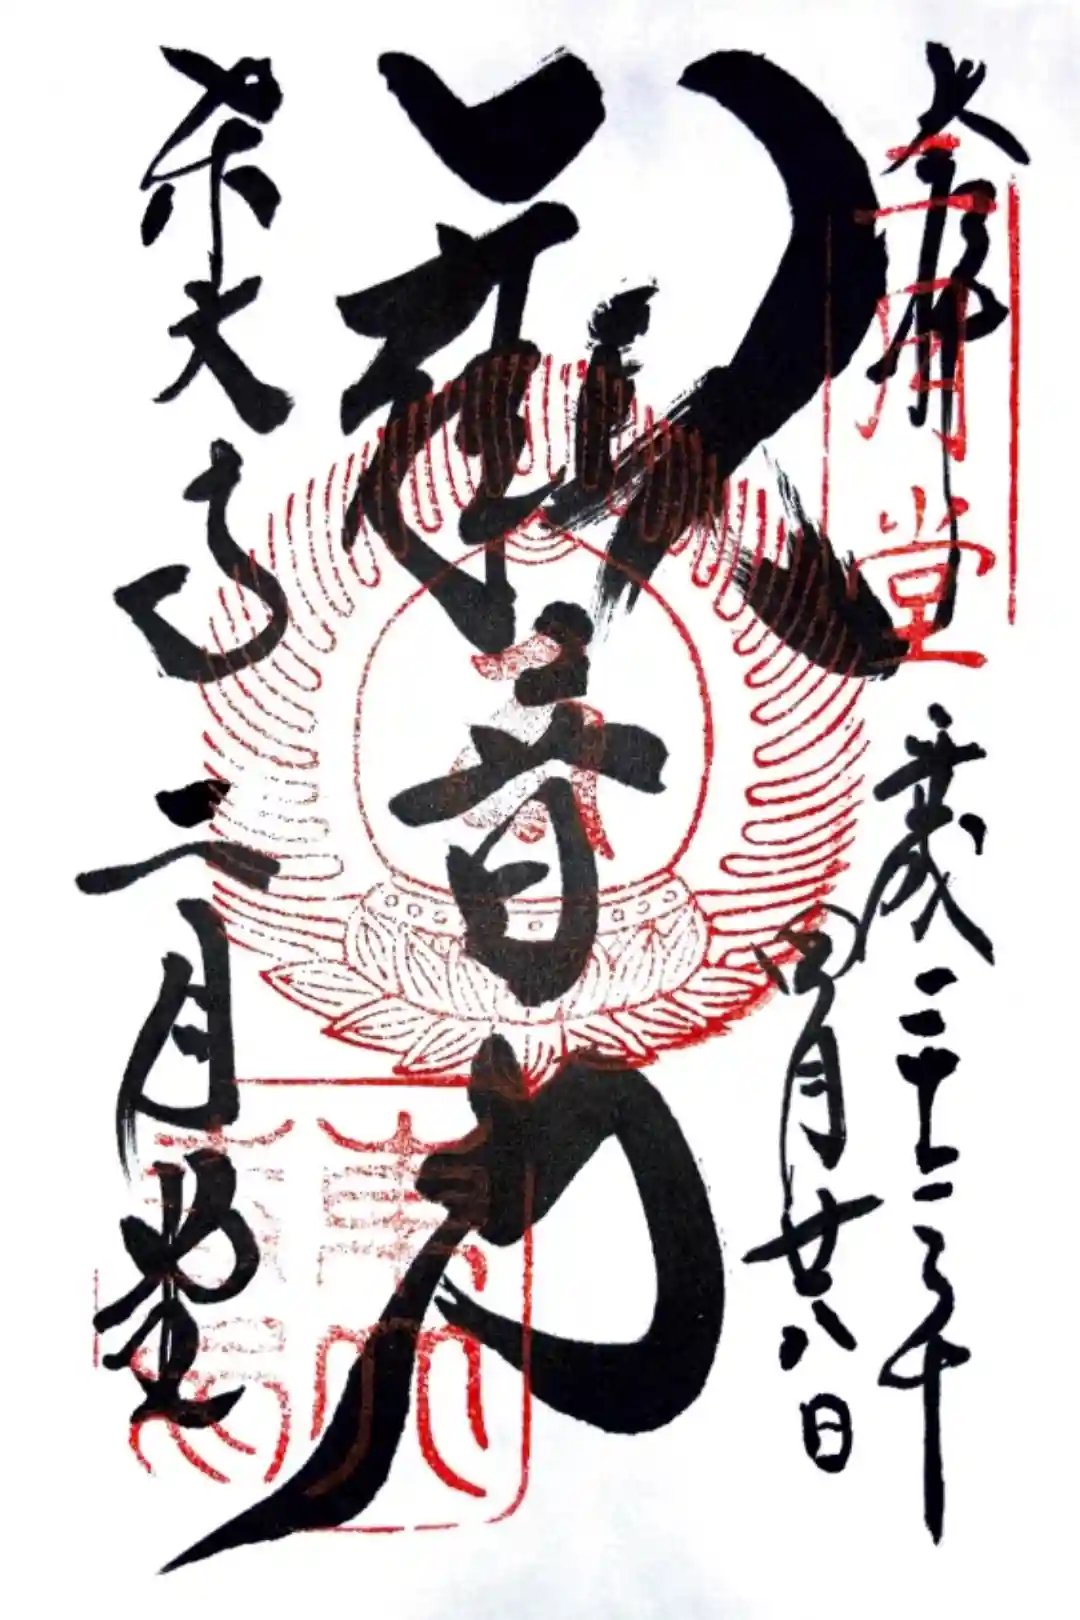 奉拝
二月堂
平成二十三年
四月廿八日
観音力
東大寺
二月堂